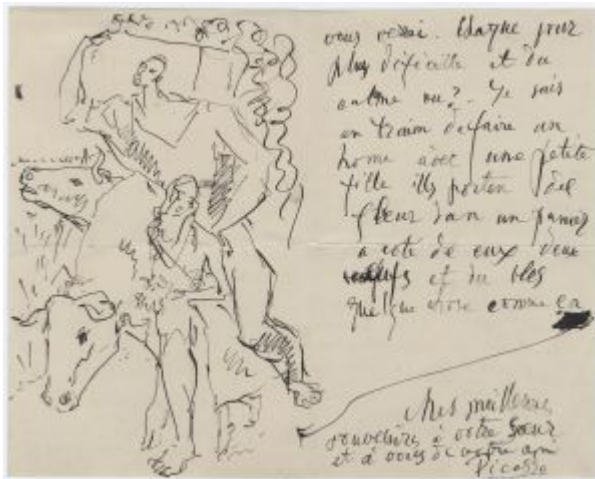 vous verrai. Chaque jour
plus dificille et du
calme ou? Je suis
en train de faire un
home avec une petite
fille ills porten des
fleur dan un panier
a cote de eux deux
beufs et du bles
quelque chose comme ca
Mes meilleures
souvenirs à votre Sœur
et à vous de votre ami
Picasso